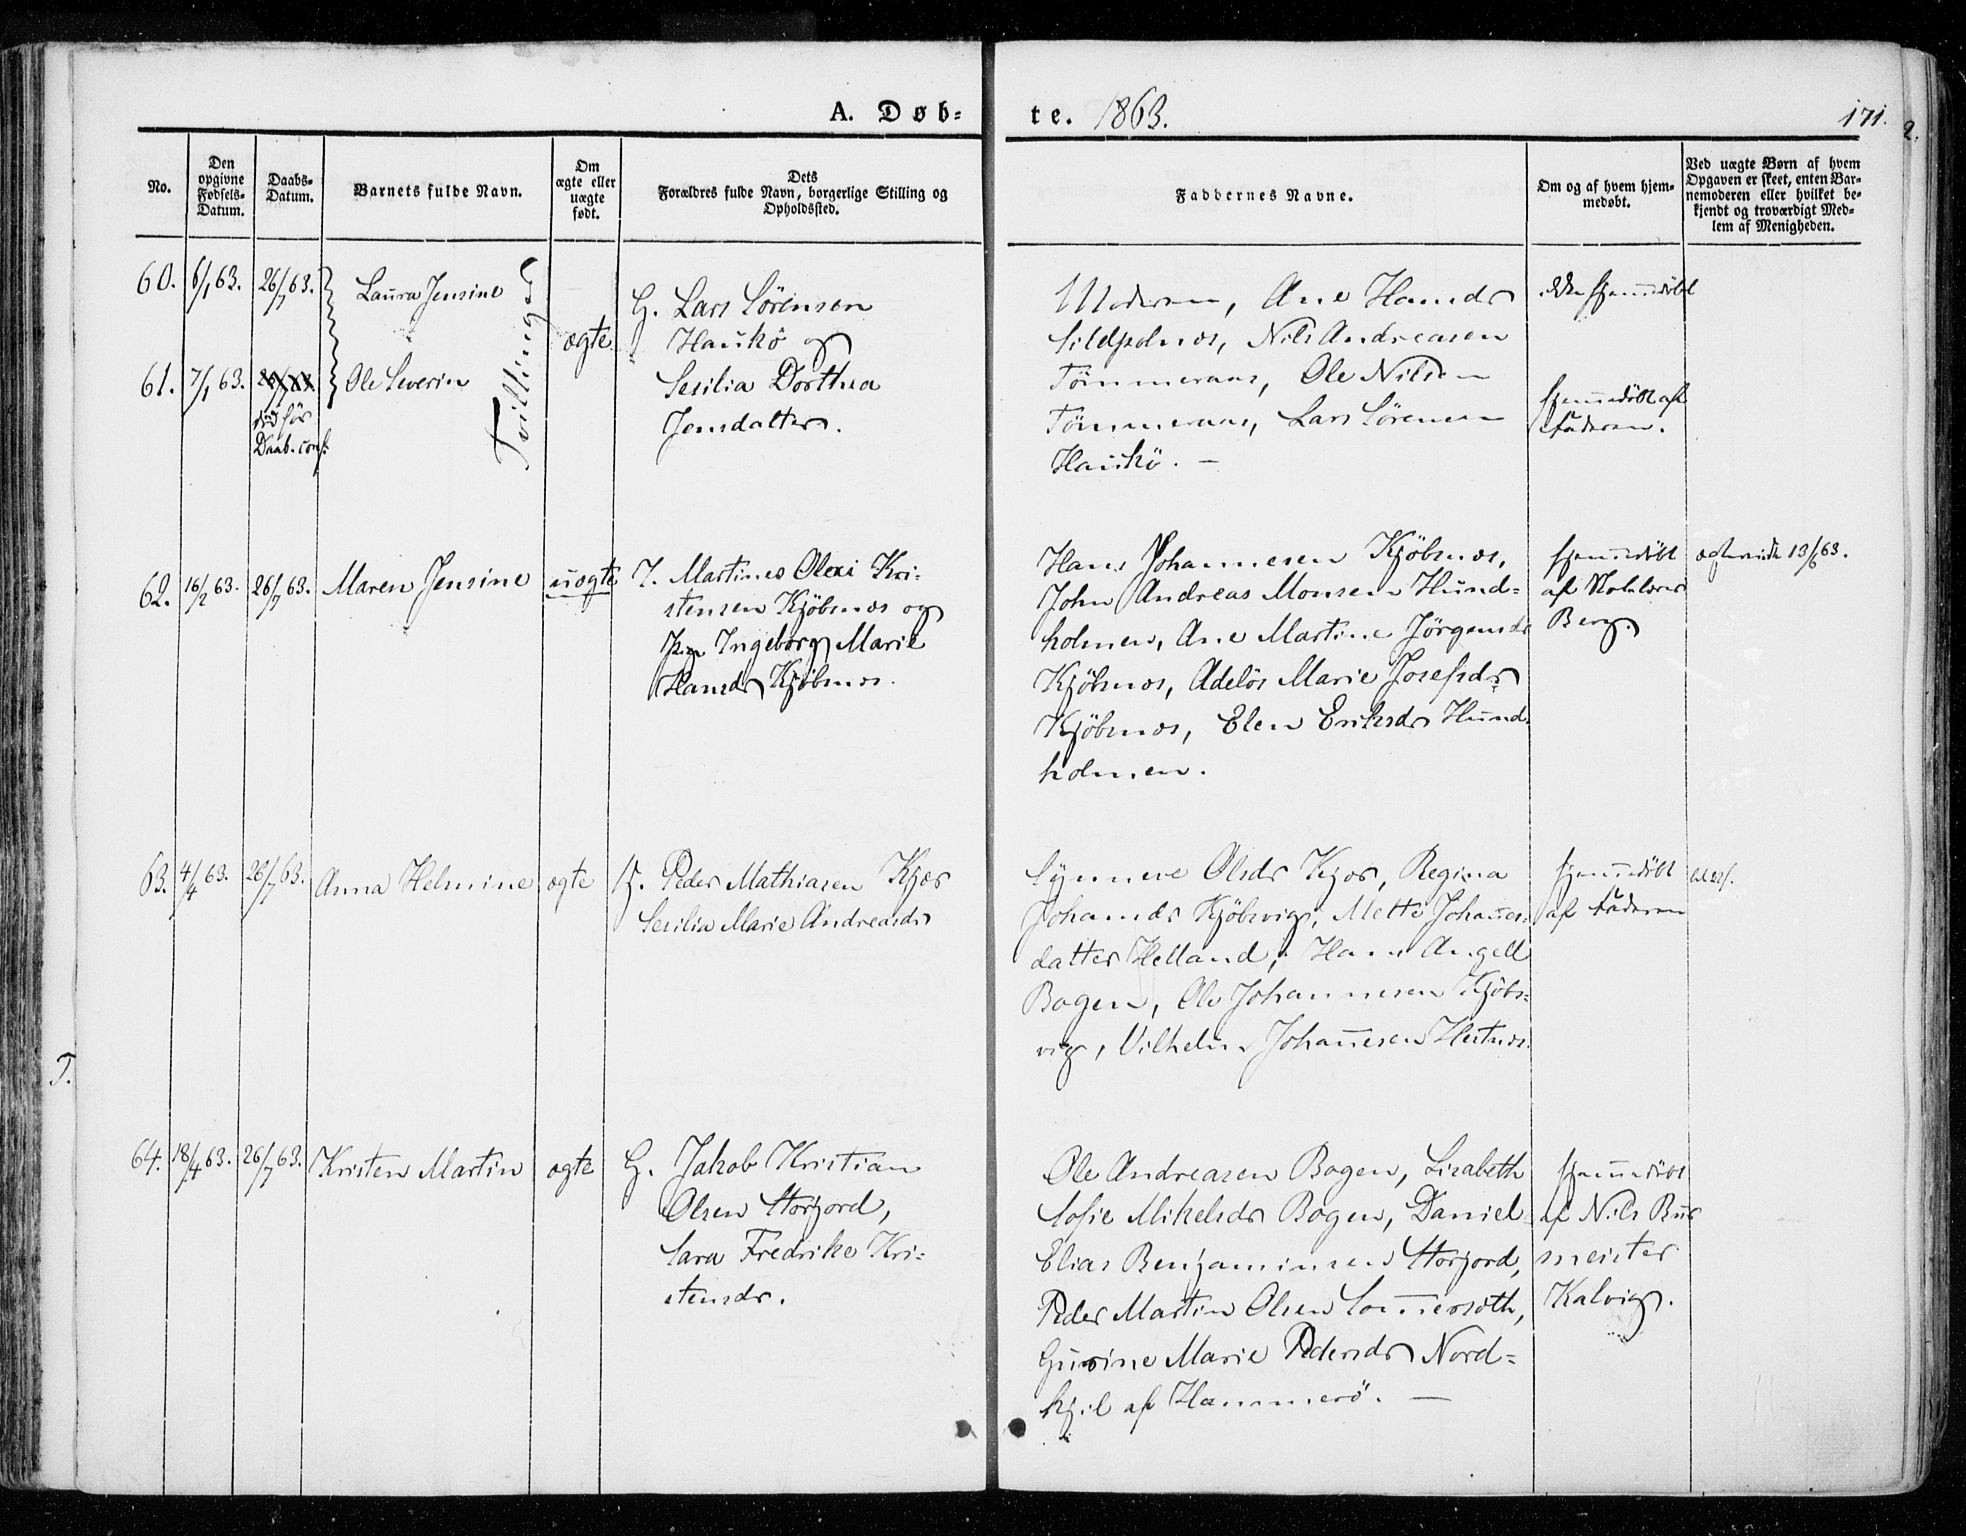 A. Døb= te. 1863. 171.
2.
No.
Den opgivne Fødsels-Datum.
Daabs-Datum.
Barnets fulde Navn.
Om ægte eller uægte født.
Dets Forældres fulde Navn, borgerlige Stilling og Opholdssted.
Faddernes Navne.
Om og af hvem hjem-
medøbt.
Ved uægte Børn af hvem
Opgaven er skeet, enten Bar-
nemoderen eller hvilket be-
kjendt og troværdigt Med-
lem af Menigheden.
60. 6/1 63. 26/7 63. Laura Jensine
Tvillinger
ægte
G. Lars Sörensen
Haukö og
Sesilia Dorthea
Jensdatter.
61. 7/1 63. 26/7 Ole Severin
död för
Daab. conf.
Moderen, Ane Hansdr
Sildpolnæs, Nils Andreasen
Tömmeraas, Ole Nilsen
Tömmeraas, Lars Sörensen
Haukö. —
ikke hjemmedöbt
hjemmedöbt af
Faderen.
62. 16/2 63. 26/7 63. Maren Jensine uægte
Martines Olai Kri-
stensen Kjöbnæs og
Pig. Ingeborg Marie
Hansdr Kjöbnæs.
Hans Johannesen Kjöbnæs,
John Andreas Monsen Hund-
holmen, Ane Martine Jörgensdr
Kjöbnæs, Adelös Marie Josefsdr
Kjöbnæs, Elen Eriksdr Hund-
holmen.
hjemmedöbt
af Skolelærer
Berg.
13/6 63.
63. 4/4 63. 26/7 63. Anna Helmine ægte
Peder Mathiasen Kjær
Sesilia Marie Andreasdr
Synneve Olsdr Kjær, Regina
Johansdr Kjöbsvig, Mette Johannes-
datter Helland, Hans Angell
Bogen, Ole Johannesen Kjöbs-
vig, Vilhelm Johannesen Hestnæs.
hjemmedöbt
af Faderen
T.
64. 18/4 63. 26/7 63. Kristen Martin ægte
G. Jakob Kristian
Olsen Storjord,
Sara Fredrike Kri-
stensdr.
Ole Andreasen Bogen, Lisabeth
Sofie Mikelsdr Bogen, Daniel
Elias Benjaminsen Storjord,
Peder Martin Olsen Sommerseth,
Gurine Marie Pedersdr Nord-
kjil af Hammerö. —
hjemmedöbt
af Nils Bur
meister
Kalvig.